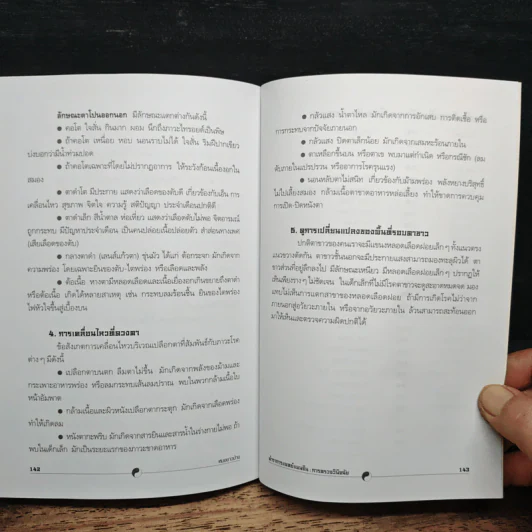 ลักษณะตาโปนออกนอก มีลักษณะแตกต่างกันดังนี้
● คอโต ใจสั่น กินมาก ผอม นึกถึงภาวะไทรอยด์เป็นพิษ
● ถ้าคอโต เหนื่อย หอบ นอนราบไม่ได้ ใจสั่น ริมฝีปากเขียว
บ่งบอกว่ามีน้ำท่วมปอด
● ถ้าคอโตเฉพาะที่โดยไม่ปรากฏอาการ ให้ระวังก้อนเนื้องอกใน
สมอง
● ตาดำโต มีประกาย แสดงว่าเลือดของตับดี เกี่ยวข้องกับเส้น การ
เคลื่อนไหว สุขภาพ จิตใจ ความรู้ สติปัญญา ประจำเดือนปกติดี
● ตาดำเล็ก สีน้ำตาล ท่อเที่ยว แสดงว่าเลือดตับไม่พอ จิตอารมณ์
ถูกกระทบ มีปัญหาประจำเดือน เป็นคนปล่อยเนื้อปล่อยตัว สำส่อนทางเพศ
(เสียเลือดของตับ)
● กลางตาดำ (เลนส์แก้วตา) ขุ่นมัว ได้แก่ ต้อกระจก มักเกิดจาก
ความพร่อง โดยเฉพาะยินของตับ-ไตพร่อง หรือเลือดและพลัง
● ต้อเนื้อ ทางตามีหลอดเลือดและเนื้อเยื่องอกเกินขยายถึงตาดำ
หรือต้อเนื้อ เกิดได้หลายสาเหตุ เช่น กระทบลมร้อนชื้น ยินของไตพร่อง
ไฟหัวใจขึ้นสู่เบื้องบน
4. การเคลื่อนไหวที่ดวงตา
ข้อสังเกตการเคลื่อนไหวบริเวณเปลือกตาที่สัมพันธ์กับภาวะโรค
ต่างๆ มีดังนี้
● เปลือกตาบนตก ลืมตาไม่ขึ้น มักเกิดจากพลังของม้ามและ
กระเพาะอาหารพร่อง หรือลมกระทบเส้นลมปราณ พบในพวกกล้ามเนื้อใบ
หน้าอัมพาต
● กล้ามเนื้อและผิวหนังเปลือกตากระตุก มักเกิดจากเลือดพร่อง
ทำให้เกิดลม
● หนังตากะพริบ มักเกิดจากสารยินและสารน้ำในร่างกายไม่พอ ถ้า
พบในเด็กเล็ก มักเป็นระยะแรกของภาวะขาดอาหาร
142
● กลัวแสง น้ำตาไหล มักเกิดจากการอักเสบ การติดเชื้อ หรือ
การกระทบจากปัจจัยภายนอก
● กลัวแสง ปิดตาเล็กน้อย มักเกิดจากลมหะร้อนภายใน
● ตาเหลือกขึ้นบน หรือตาเข พบมาแต่กำเนิด หรือกรณีชัก (ลม
ตับภายในแปรปรวน หรืออาการโรครุนแรง)
● นอนหลับตาไม่สนิท เกี่ยวข้องกับม้ามพร่อง พลังหยางบริสุทธิ์
ไม่ไปเลี้ยงสมอง กล้ามเนื้อตาขาดอาหารหล่อเลี้ยง ทำให้ขาดการควบคุม
การเปิด-ปิดหนังตา
5. ดูการเปลี่ยนแปลงของพื้นที่รอบตาขาว
ปกติตาขาวของคนเราจะมีแขนงหลอดเลือดฝอยเล็กๆ ทั้งแนวตรง
แนวขวางตัดกัน ตาขาวชั้นนอกจะมีประกายแสงสามารถมองทะลุผิวได้ ตา
ขาวส่วนที่อยู่ลึกลงไป มีลักษณะเหนียว มีหลอดเลือดฝอยเล็กๆ ปรากฏให้
เห็นเพียงรางๆ ไม่ชัดเจน ในเด็กเล็กที่ไม่มีโรคตาขาวจะดูสะอาดหมดจด มอง
แทบไม่เห็นการแตกสาขาของหลอดเลือดฝอย ถ้ามีการเกิดโรคไม่ว่าจาก
ภายนอกสู่อวัยวะภายใน หรือจากอวัยวะภายใน ล้วนสามารถสะท้อนออก
มาให้เห็นและตรวจความผิดปกติได้
143